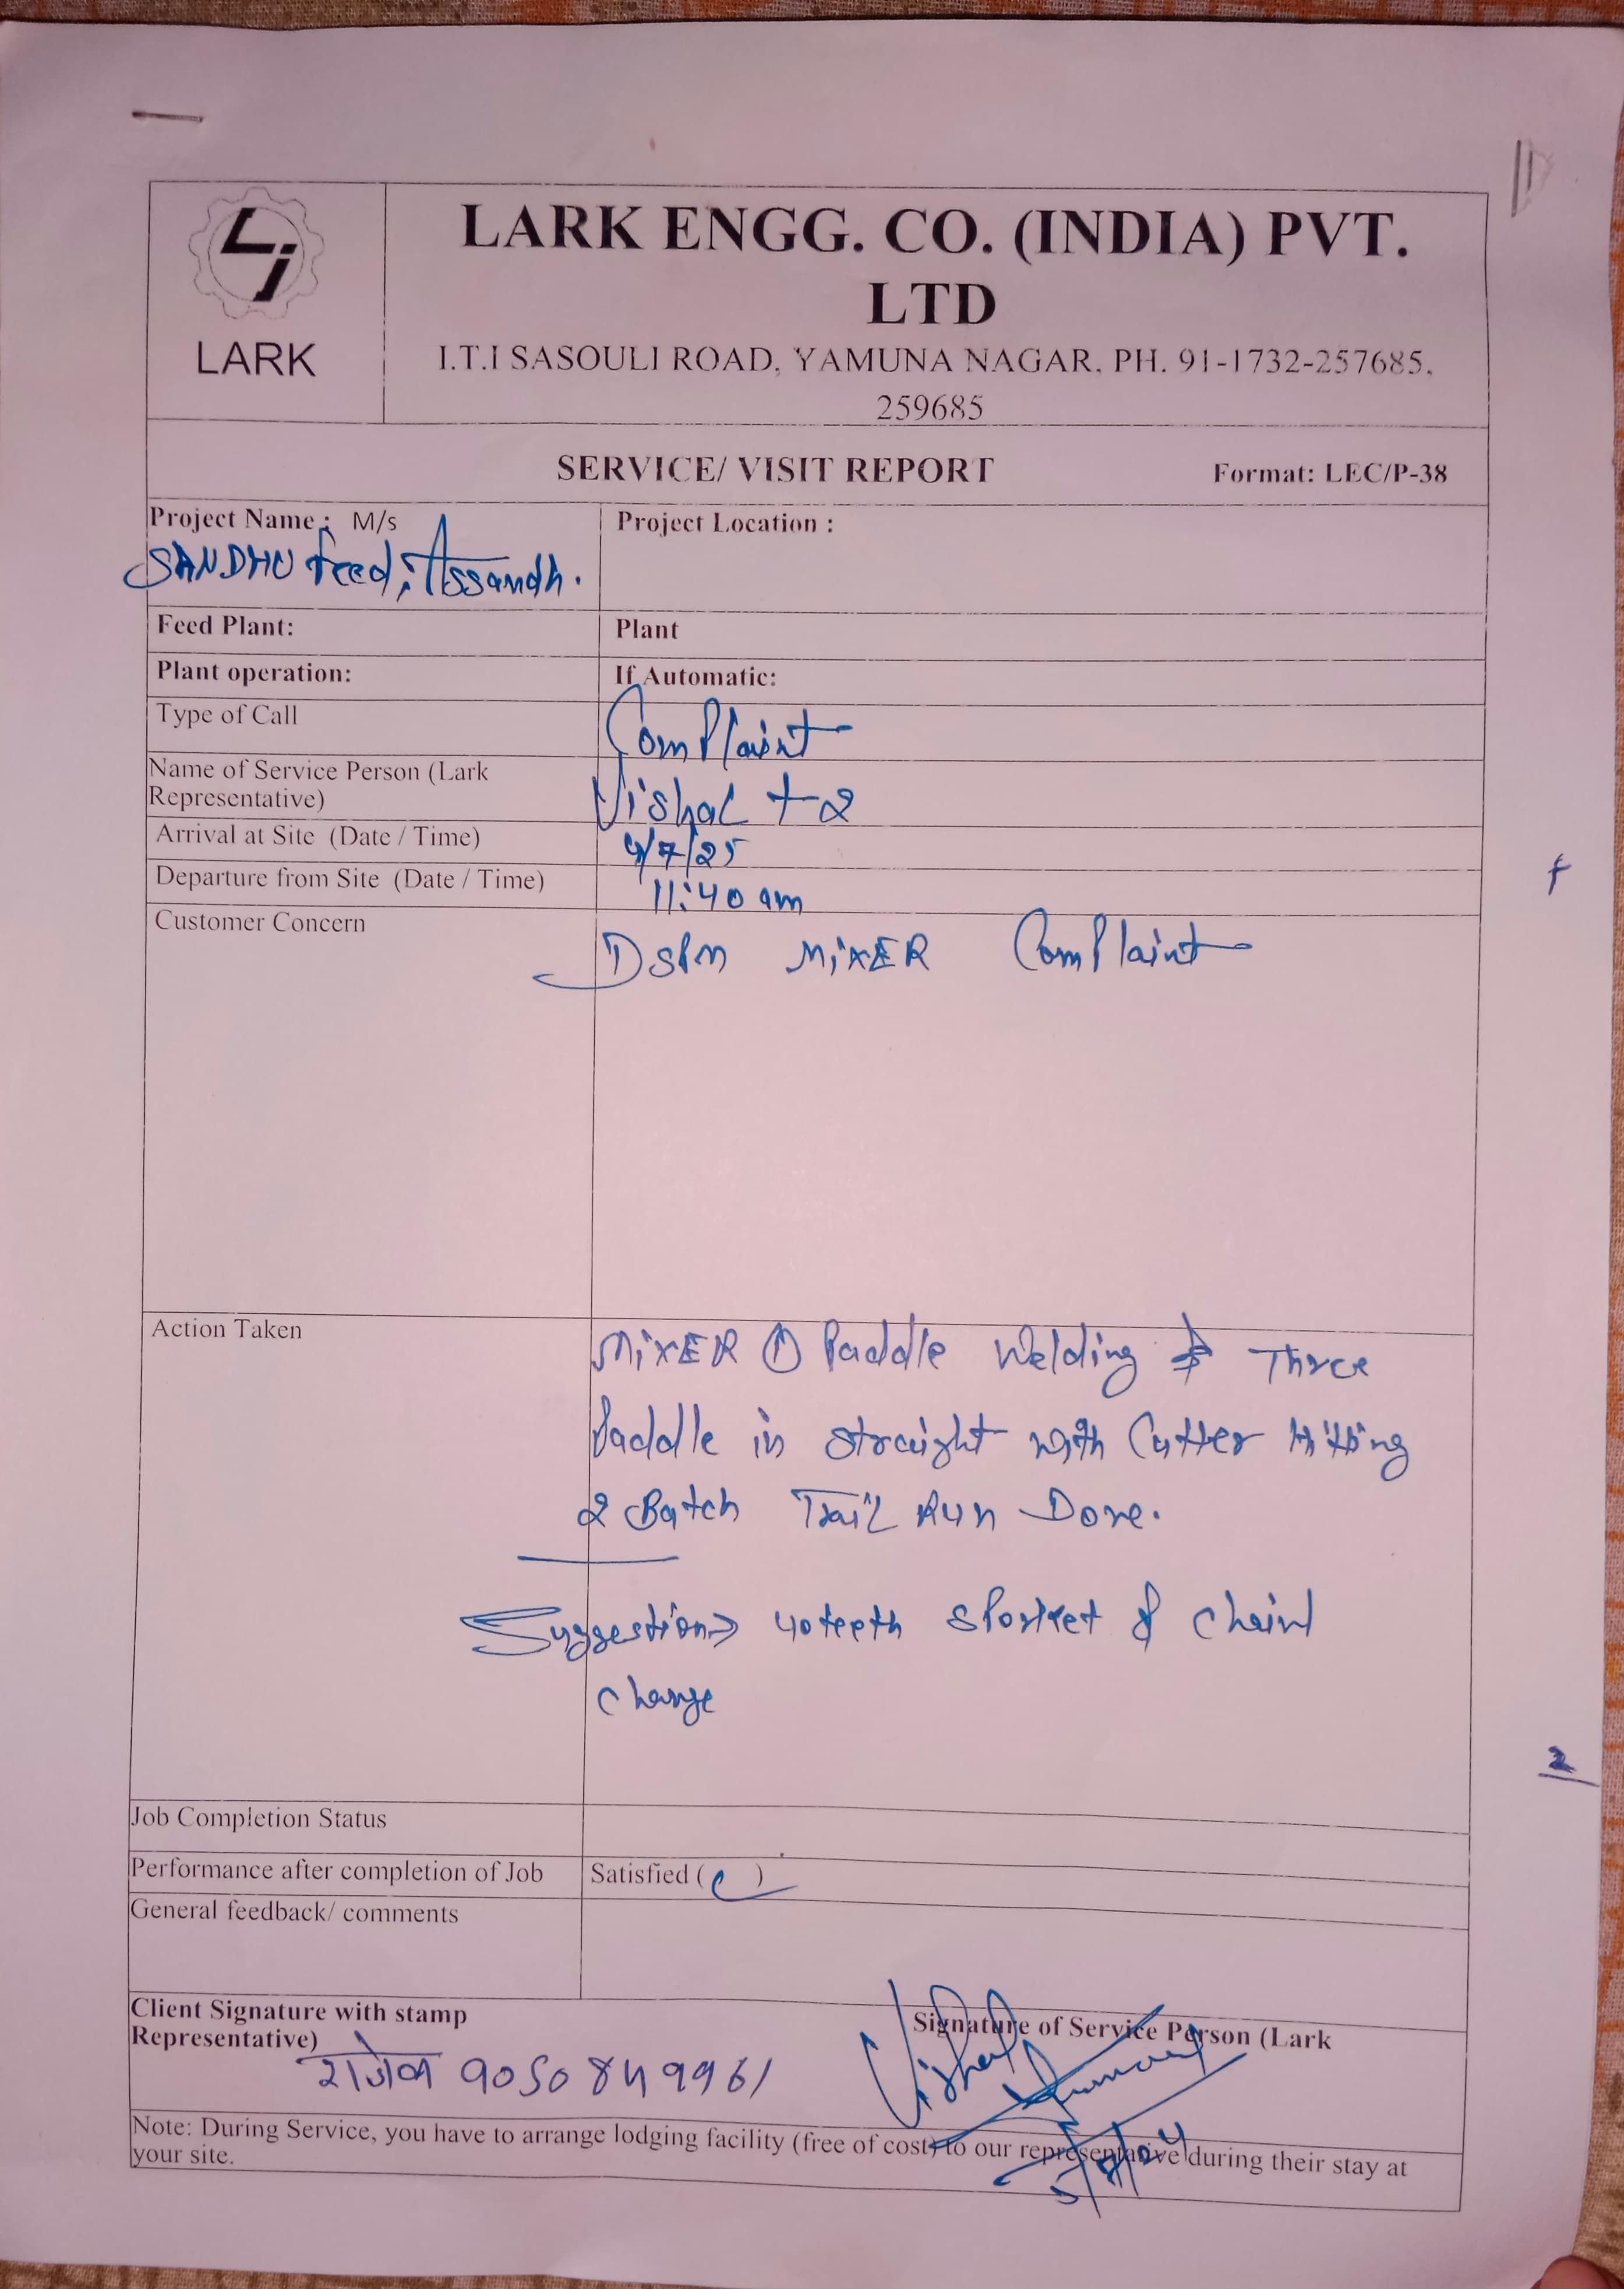 LARK
LARK ENGG. CO. (INDIA) PVT.
LTD
I.T.I SASOULI ROAD, YAMUNA NAGAR, PH. 91-1732-257685,
259685
SERVICE/ VISIT REPORT Format: LEC/P-38
Project Name : M/s
SANDHU feed, Assandh.
Project Location :
Feed Plant: Plant
Plant operation: If Automatic:
Type of Call ComPlaint
Name of Service Person (Lark
Representative) Vishal +2
Arrival at Site (Date / Time) 4/7/25
Departure from Site (Date / Time) 11:40 am
Customer Concern DSPM MiXER ComPlaint
Action Taken MiXER ① Paddle Welding & Three
Paddle in straight with Cutter Hitting
2 Batch Trail Run Done.
Suggestion → 40 teeth sporket & chain
change
2
Job Completion Status
Performance after completion of Job Satisfied ( )
General feedback/ comments
Client Signature with stamp
Representative)
9050849961
Signature of Service Person (Lark
Vishal Kumar
Note: During Service, you have to arrange lodging facility (free of cost) to our representative during their stay at
your site.